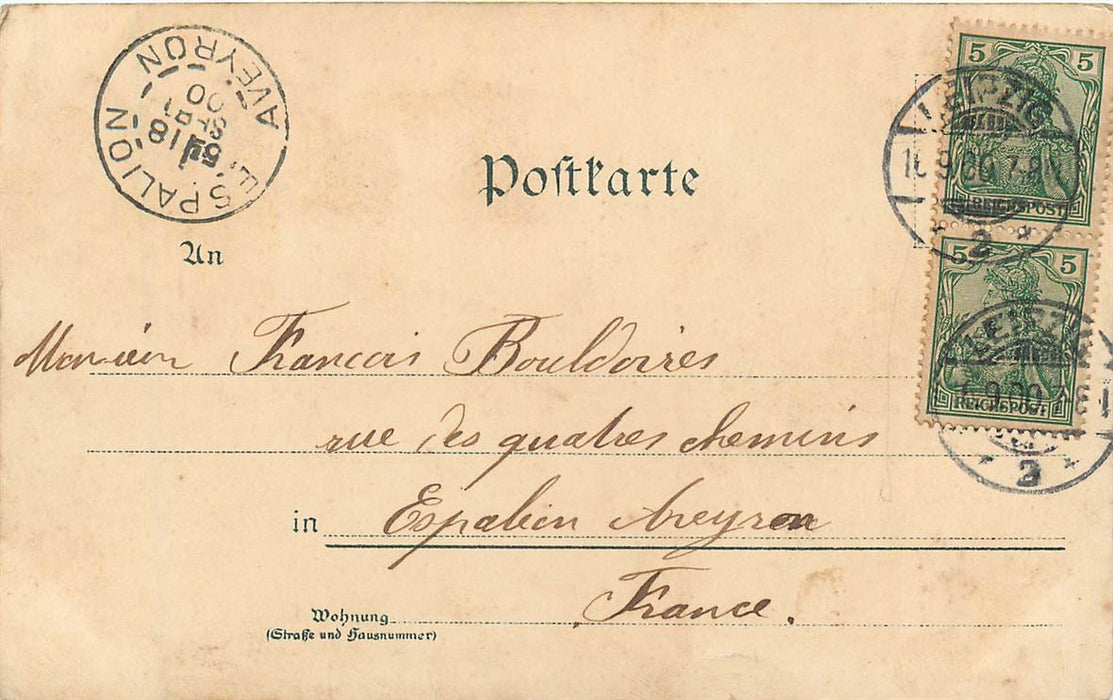 ESPALION AVEYRON
5E
18
SEPT
00
Postkarte
5 5
REICHSPOST
LEIPZIG
9.00.7-8N.
* 2 *
5 5
REICHSPOST
LEIPZIG
9.00.7-8
* 2 *
An
Monsieur Francois Bouldoires
rue des quatres chemins
in Espalion Aveyron
France.
Wohnung
(Straße und Hausnummer)